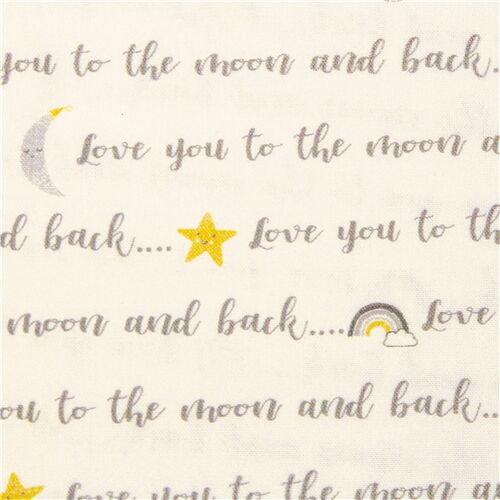 you to the moon and back..
Love you to the moon a
d back.... Love you to th
moon and back.... Love
ou to the moon and back..
Love you to the moon an